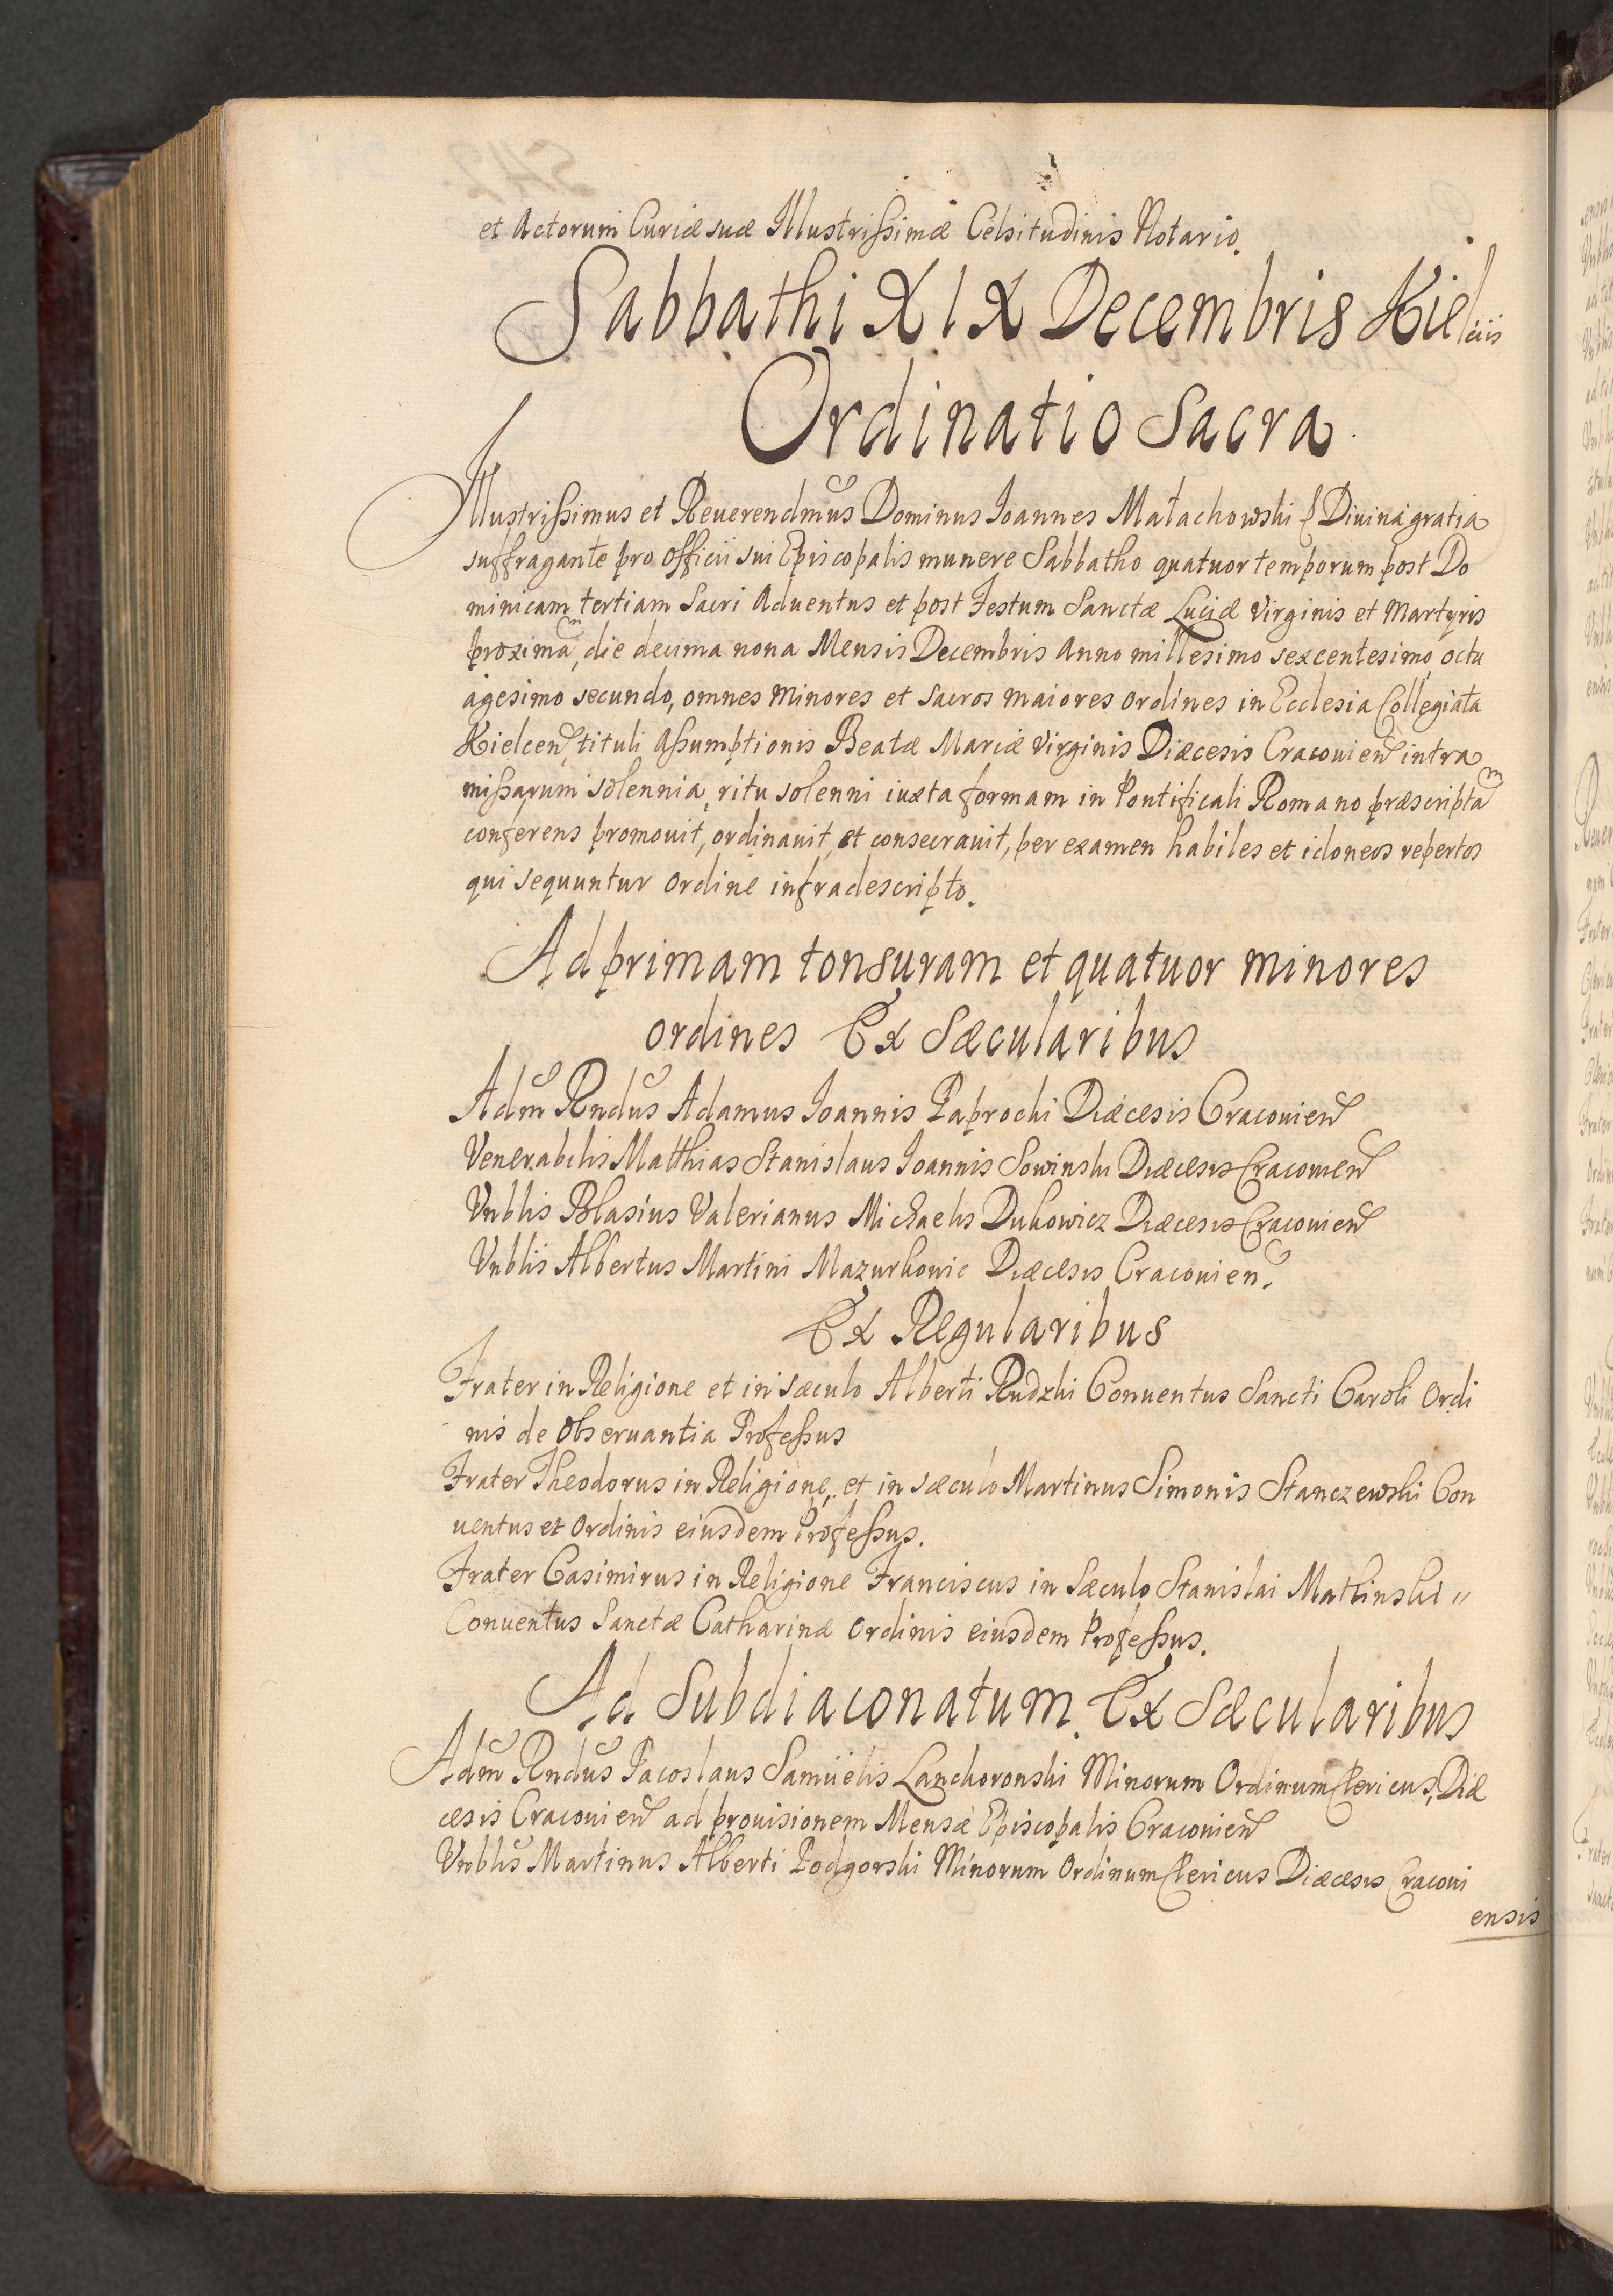 et Actorum Curiæ suæ Illustrissimæ Celsitudinis Notario.
Sabbathi XIX Decembris Kielciis
Ordinatio Sacra
Illustrissimus et Reuerendmus Dominus Ioannes Małachowski Diuina gratia
suffragante pro officii sui Episcopalis munere Sabbatho quatuor temporum post Do
minicam tertiam Sacri Aduentus et post Festum Sanctæ Luciæ Virginis et Martyris
proximam, die decima nona Mensis Decembris Anno millesimo sexcentesimo octu
agesimo secundo, omnes Minores et Sacros Maiores Ordines in Ecclesia Collegiata
Kielcen, tituli Assumptionis Beatæ Mariæ Virginis Diæcesis Cracouien intra
missarum solennia, ritu solenni iuxta formam in Pontificali Romano præscriptam
conferens promouit, ordinauit, et consecrauit, per examen habiles et idoneos repertos
qui sequuntur ordine infradescripto.
Ad primam tonsuram et quatuor minores
ordines Ex Sæcularibus
Adm Rndus Adamus Ioannis Paprocki Diæcesis Cracouien
Venerabilis Matthias Stanislaus Ioannis Sowinski Diæcesis Cracouien
Vnblis Blasius Valerianus Michaelis Dukowicz Diæcesis Cracouien
Vnblis Albertus Martini Mazurkowic Diæcesis Cracouien.
Ex Regularibus
Frater in Religione et in sæculo Alberti Rudzki Conuentus Sancti Caroli Ordi
nis de Obseruantia Professus
Frater Theodorus in Religione, et in sæculo Martinus Simonis Stanczewski Con
uentus et Ordinis eiusdem Professus.
Frater Casimirus in Religione Franciscus in Sæculo Stanislai Matlinski "
Conuentus Sanctæ Catharinæ Ordinis eiusdem Professus.
Ad Subdiaconatum. Ex Sæcularibus
Adm Rndus Jacoslaus Samüelis Lanckoronski Minorum Ordinum Clericus, Diæ
cesis Cracouien ad prouisionem Mensæ Episcopalis Cracouien
Vnblis Martinus Alberti Podgorski Minorum Ordinum Clericus Diæcesis Cracoui
ensis